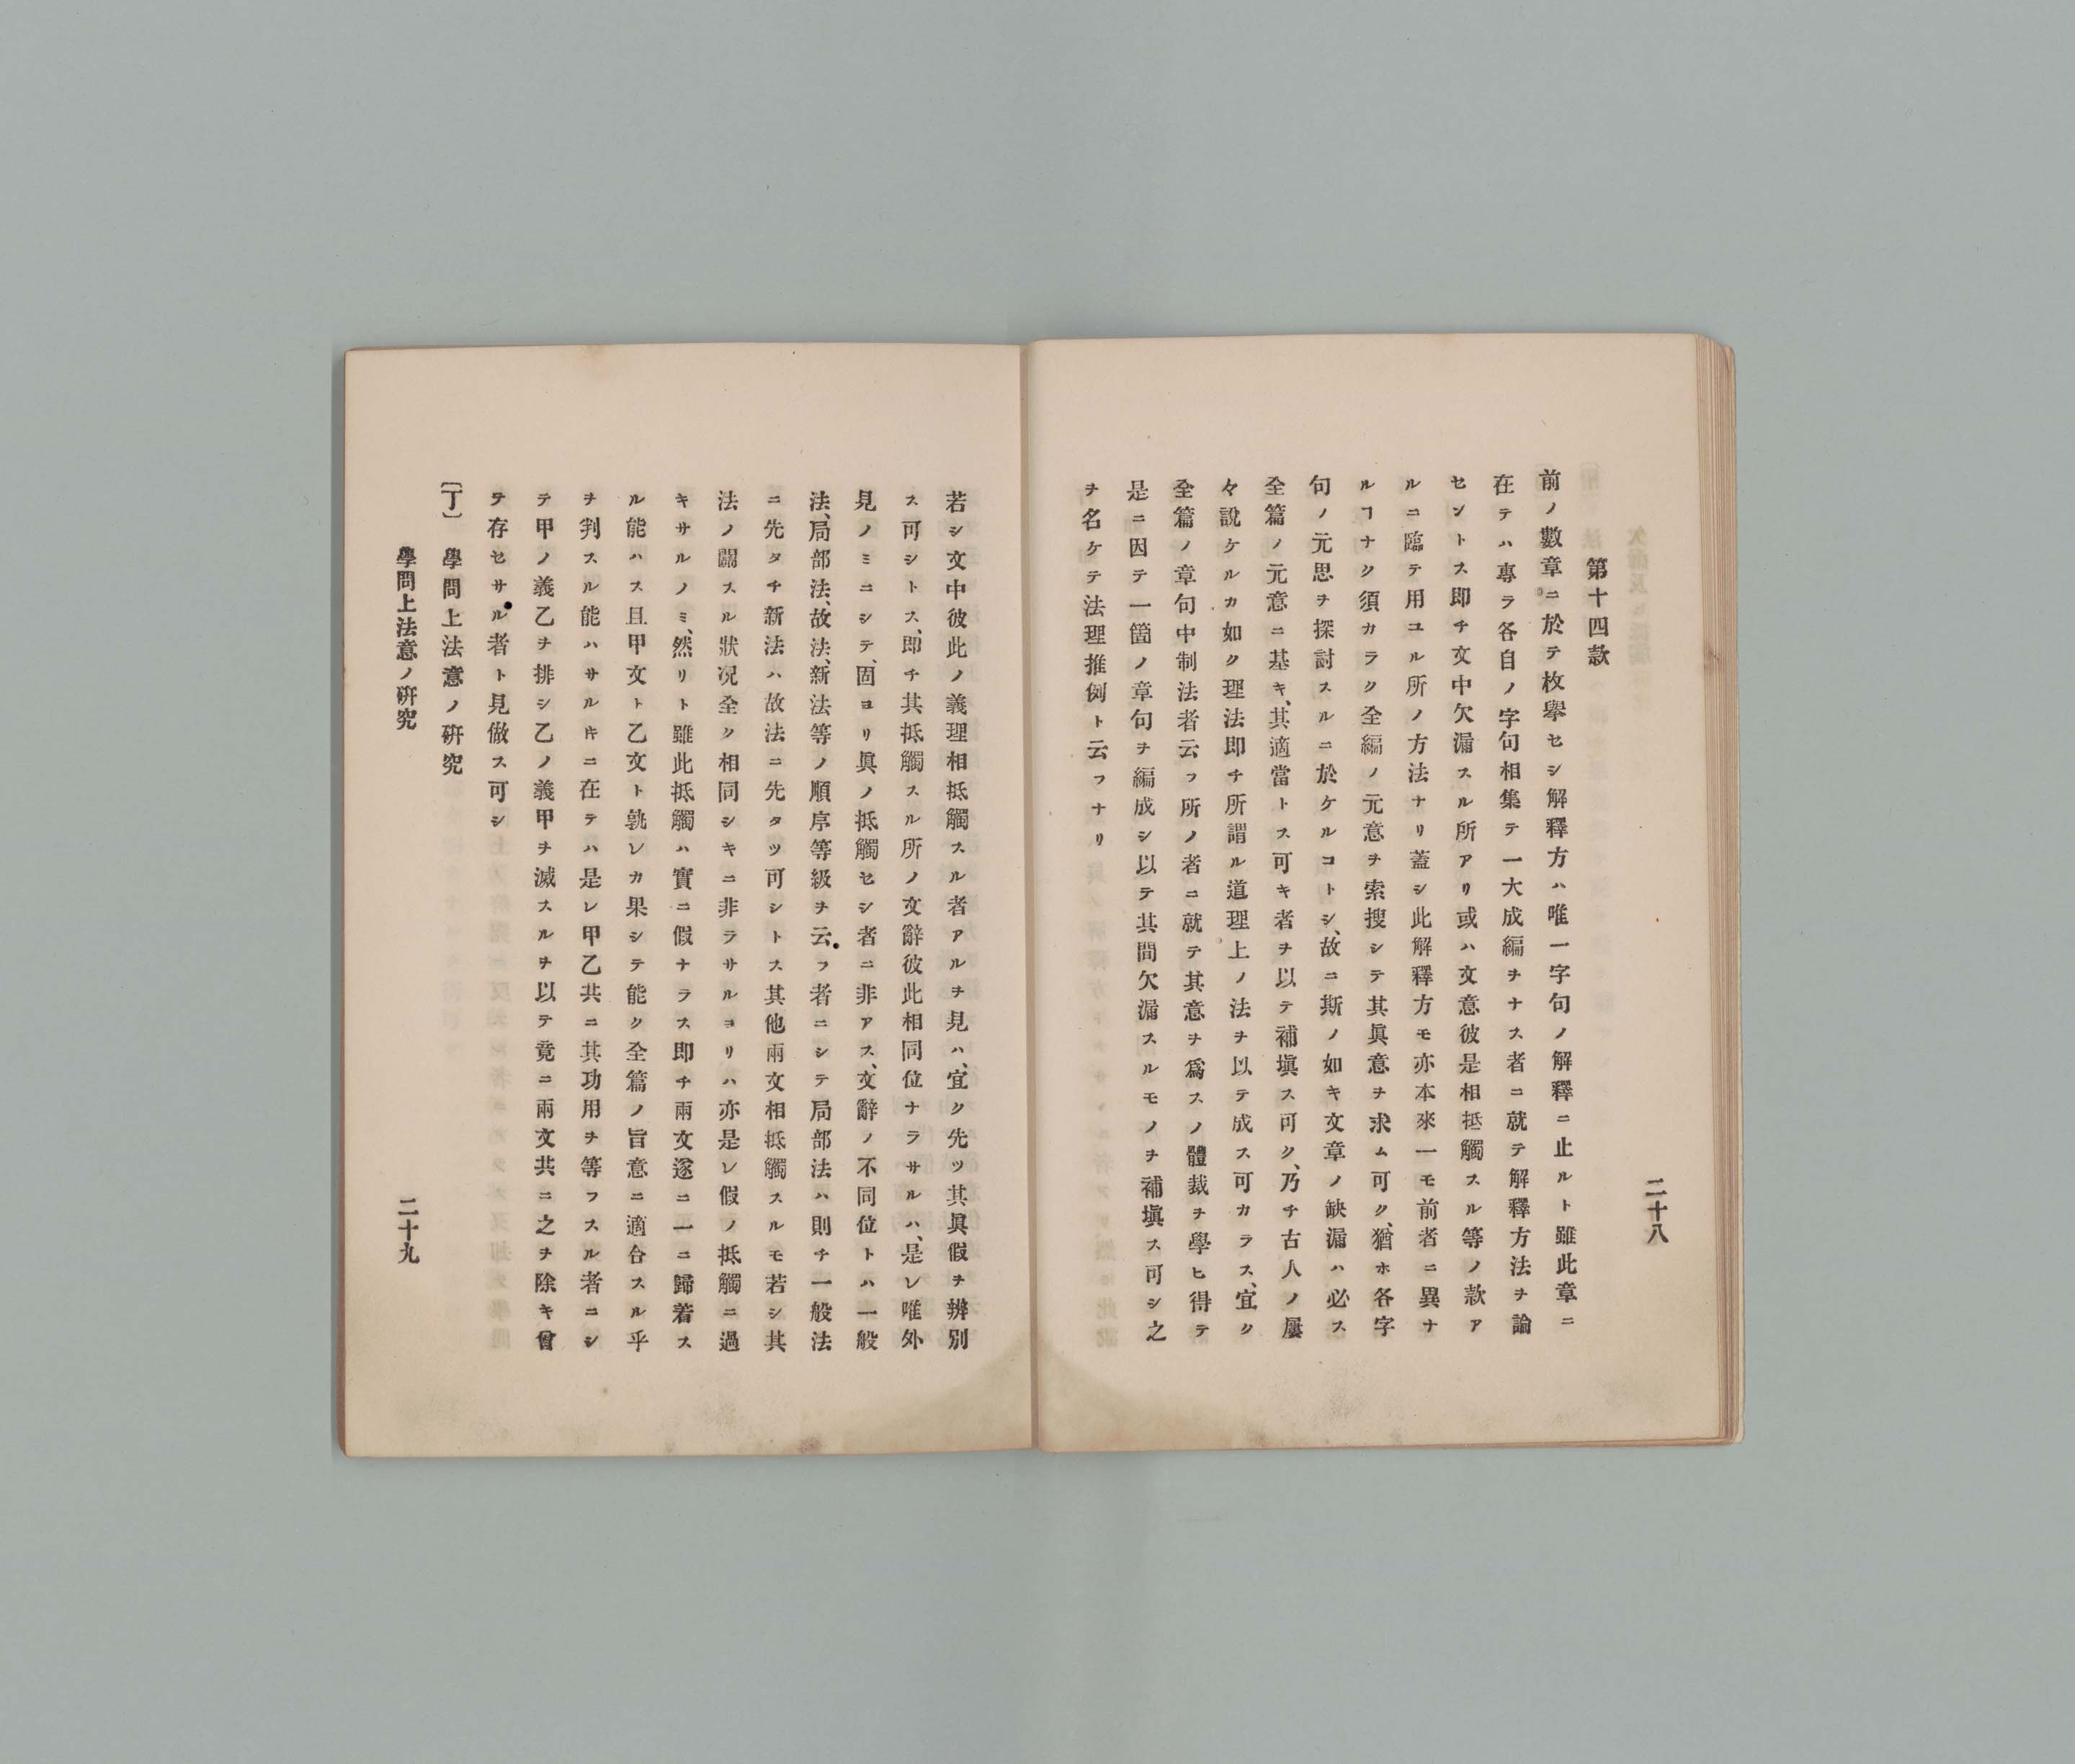 二十八
第十四款
前ノ數章ニ於テ枚擧セシ解釋方ハ唯一字句ノ解釋ニ止ルト雖此章ニ
在テハ專ラ各自ノ字句相集テ一大成編ヲナス者ニ就テ解釋方法ヲ論
セントス即チ文中欠漏スル所アリ或ハ文意彼是相抵觸スル等ノ款ア
ルニ臨テ用ユル所ノ方法ナリ蓋シ此解釋方モ亦本來一モ前者ニ異ナ
ルヿナク須カラク全編ノ元意ヲ索搜シテ其眞意ヲ求ム可ク、猶ホ各字
句ノ元思ヲ探討スルニ於ケルコトシ、故ニ斯ノ如キ文章ノ缺漏ハ必ス
全篇ノ元意ニ基キ、其適當トス可キ者ヲ以テ補塡ス可ク、乃チ古人ノ屢
々說ケルカ如ク理法即チ所謂ル道理上ノ法ヲ以テ成ス可カラス、宜ク
全篇ノ章句中制法者云フ所ノ者ニ就テ其意ヲ爲スノ體裁ヲ學ヒ得テ
是ニ因テ一箇ノ章句ヲ編成シ以テ其間欠漏スルモノヲ補塡ス可シ之
ヲ名ケテ法理推例ト云フナリ
若シ文中彼此ノ義理相抵觸スル者アルヲ見ハ、宜ク先ツ其眞假ヲ辨別
ス可シトス、即チ其抵觸スル所ノ文辭彼此相同位ナラサルハ、是レ唯外
見ノミニシテ、固ヨリ眞ノ抵觸セシ者ニ非アス、文辭ノ不同位トハ一般
法、局部法、故法、新法等ノ順序等級ヲ云フ者ニシテ局部法ハ則チ一般法
ニ先タチ新法ハ故法ニ先タツ可シトス其他兩文相抵觸スルモ若シ其
法ノ關スル狀况全ク相同シキニ非ラサルヨリハ亦是レ假ノ抵觸ニ過
キサルノミ、然リト雖此抵觸ハ實ニ假ナラス即チ兩文遂ニ一ニ歸着ス
ル能ハス且甲文ト乙文ト孰レカ果シテ能ク全篇ノ旨意ニ適合スル乎
ヲ判スル能ハサルキニ在テハ是レ甲乙共ニ其功用ヲ等フスル者ニシ
テ甲ノ義乙ヲ排シ乙ノ義甲ヲ滅スルヲ以テ竟ニ兩文共ニ之ヲ除キ曾
テ存セサル者ト見傚ス可シ
〔丁〕 學問上法意ノ硏究
學問上法意ノ硏究 二十九